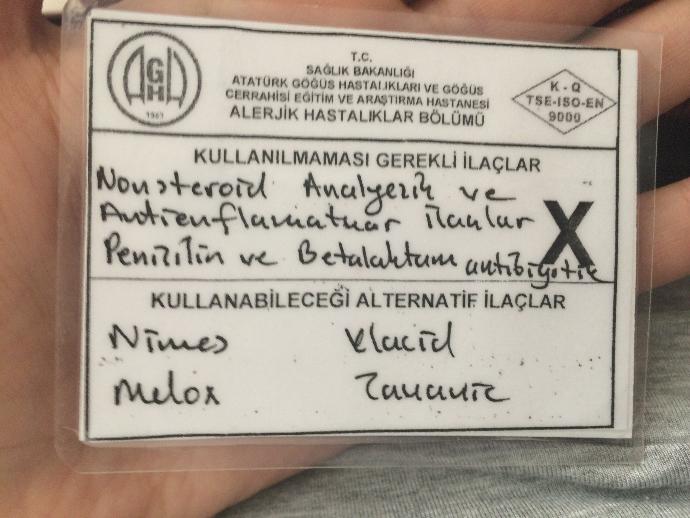 AGHH
1953
T.C.
SAĞLIK BAKANLIĞI
ATATÜRK GÖĞÜS HASTALIKLARI VE GÖĞÜS
CERRAHİSİ EĞİTİM VE ARAŞTIRMA HASTANESİ
ALERJİK HASTALIKLAR BÖLÜMÜ
K - Q
TSE-ISO-EN
9000
KULLANILMAMASI GEREKLİ İLAÇLAR
Nonsteroid Analyezik ve
Antienflamatuar ilaçlar
Penizilin ve Betalaktam antibiyotik
X
KULLANABİLECEĞİ ALTERNATİF İLAÇLAR
Nimes Klacid
Melox